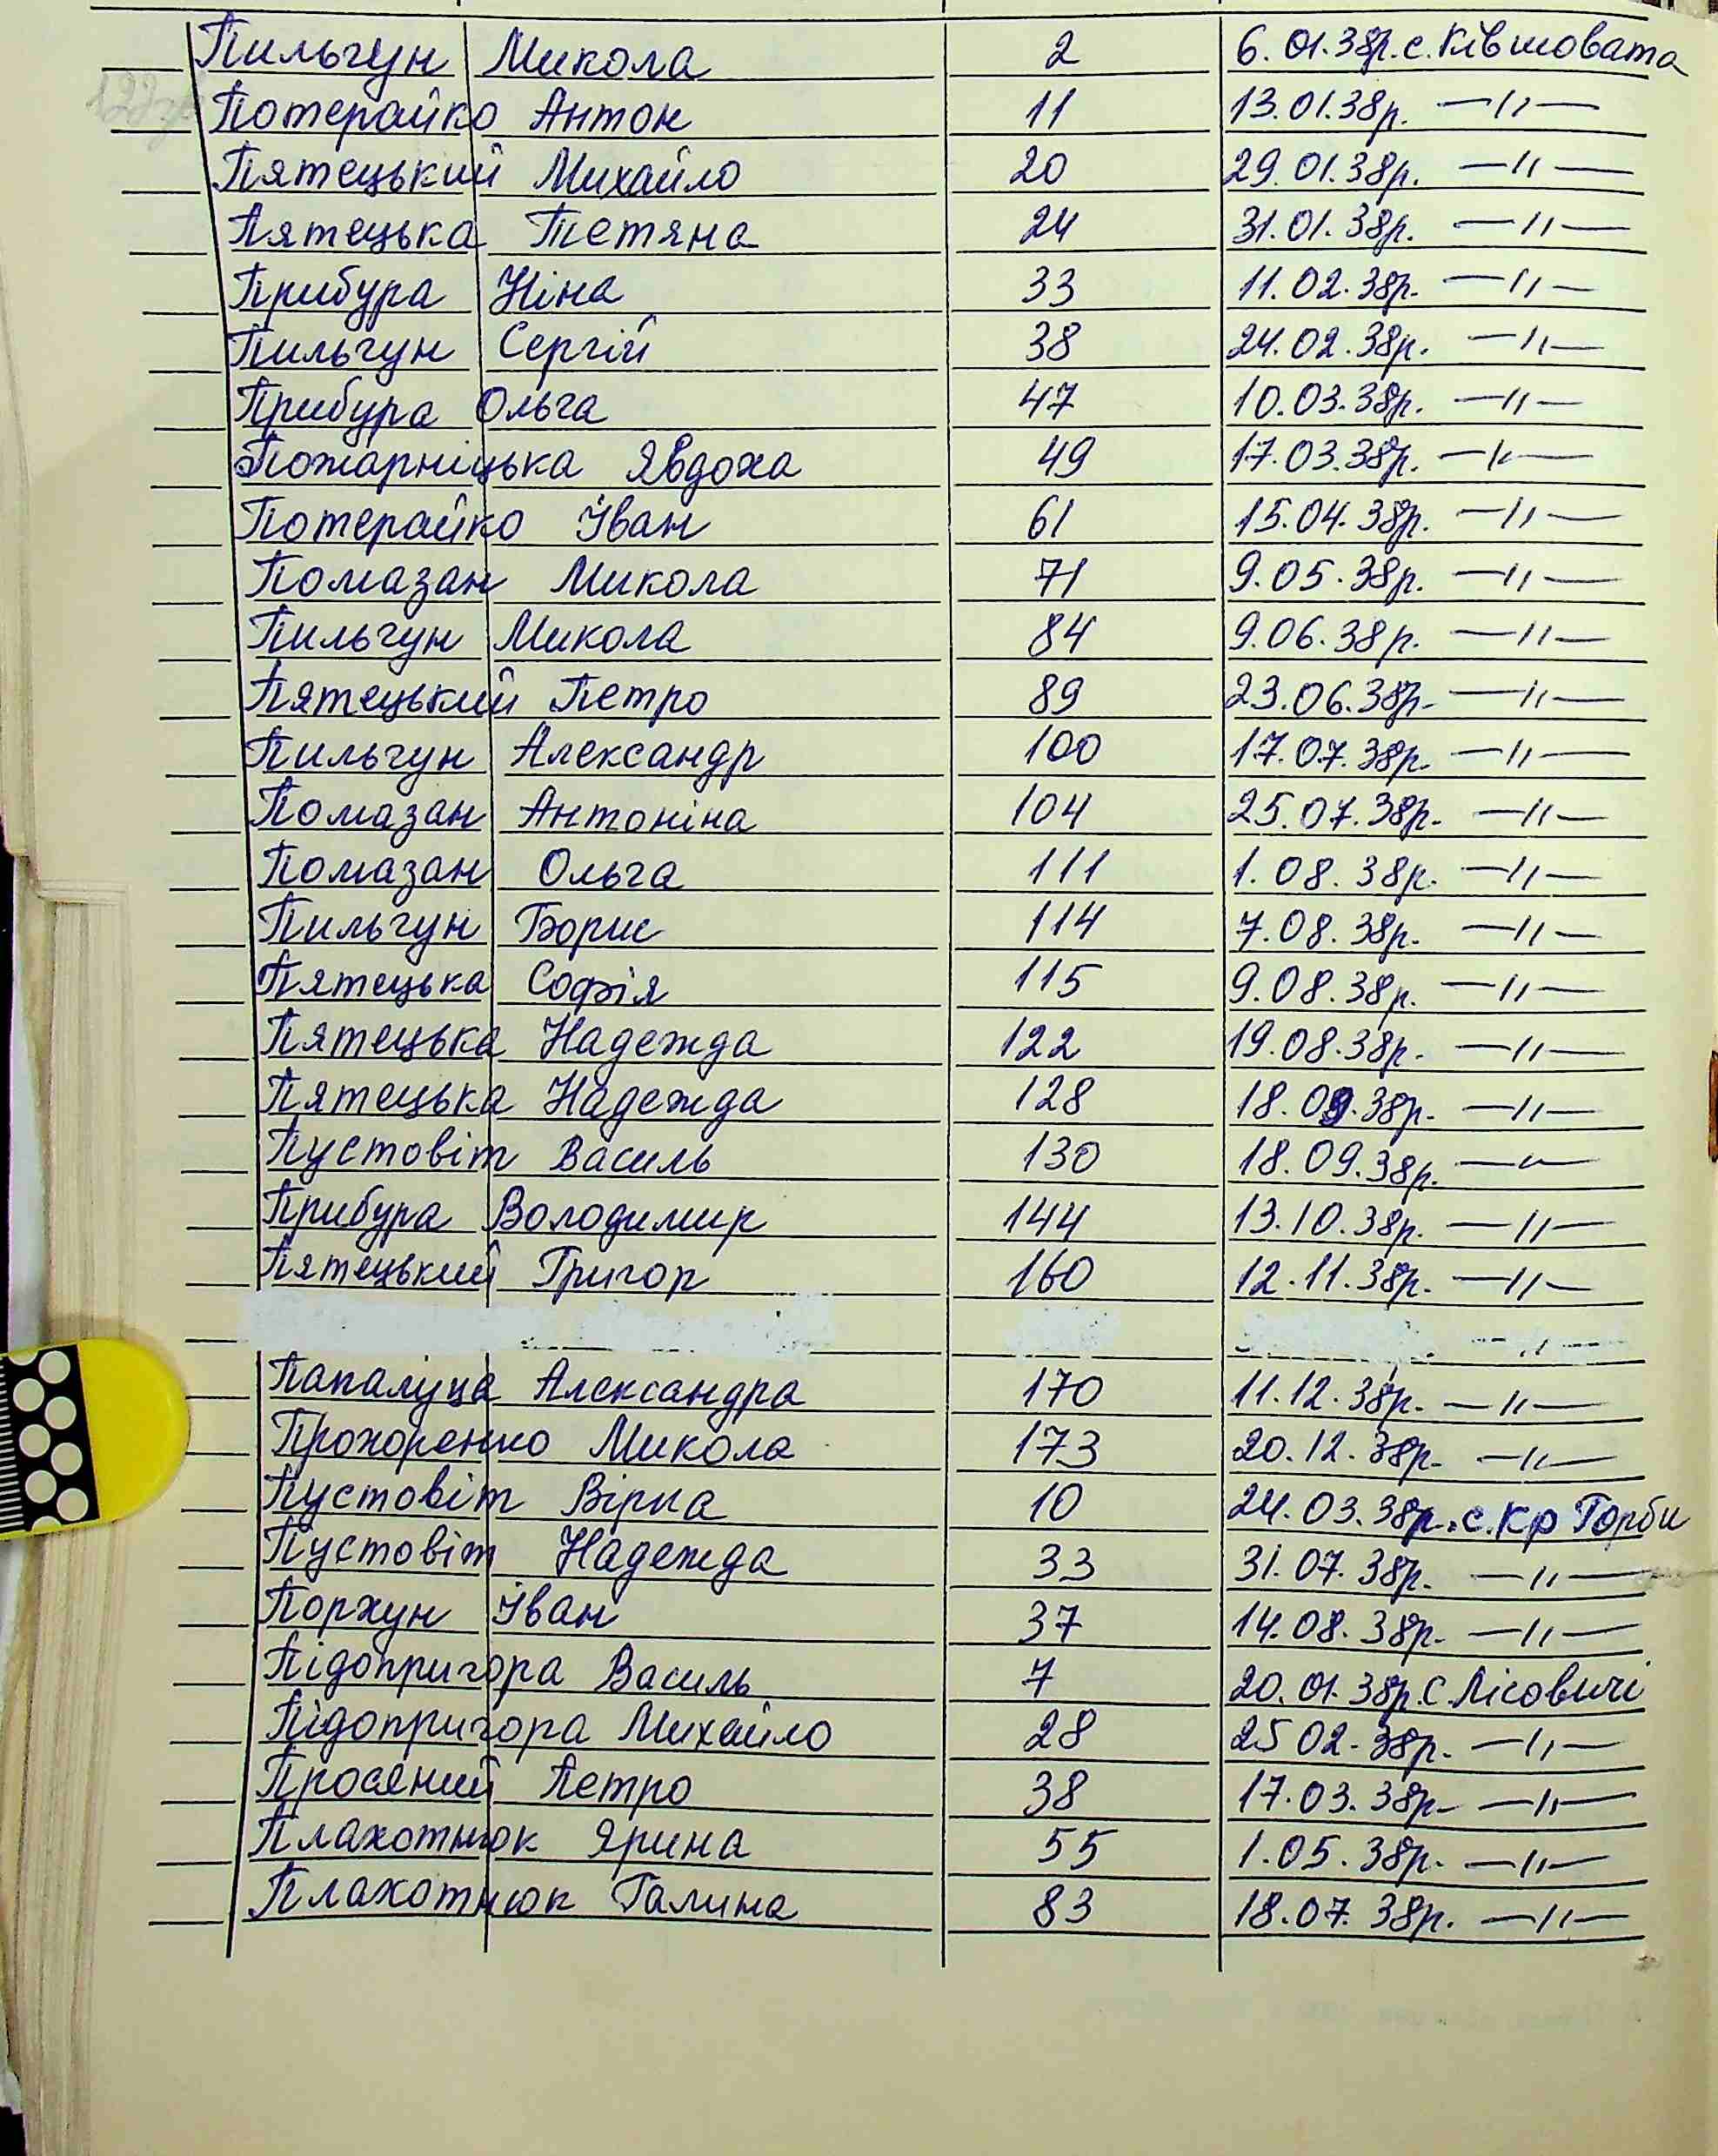 Пильгун Микола 2 6.01.38р. с. Ківшовата
Потерайко Антон 11 13.01.38р. —//—
Пятецький Михайло 20 29.01.38р. —//—
Пятецька Тетяна 24 31.01.38р. —//—
Прибура Ніна 33 11.02.38р. —//—
Пильгун Сергій 38 24.02.38р. —//—
Прибура Ольга 47 10.03.38р. —//—
Пожарніцька Явдоха 49 17.03.38р. —//—
Потерайко Іван 61 15.04.38р. —//—
Помазан Микола 71 9.05.38р. —//—
Пильгун Микола 84 9.06.38р. —//—
Пятецький Петро 89 23.06.38р. —//—
Пильгун Александр 100 17.07.38р. —//—
Помазан Антоніна 104 25.07.38р. —//—
Помазан Ольга 111 1.08.38р. —//—
Пильгун Борис 114 7.08.38р. —//—
Пятецька Софія 115 9.08.38р. —//—
Пятецька Надежда 122 19.08.38р. —//—
Пятецька Надежда 128 18.09.38р. —//—
Пустовіт Василь 130 18.09.38р. —//—
Прибура Володимир 144 13.10.38р. —//—
Пятецький Григор 160 12.11.38р. —//—
Папалуца Александра 170 11.12.38р. —//—
Прохоренко Микола 173 20.12.38р. —//—
Пустовіт Вірка 10 24.03.38р. с. Кр Горби
Пустовіт Надежда 33 31.07.38р. —//—
Порхун Іван 37 14.08.38р. —//—
Підопригора Василь 7 20.01.38р. с. Лісовичі
Підопригора Михайло 28 25 02.38р. —//—
Просяний Петро 38 17.03.38р. —//—
Плахотнюк Ярина 55 1.05.38р. —//—
Плахотнюк Галина 83 18.07.38р. —//—